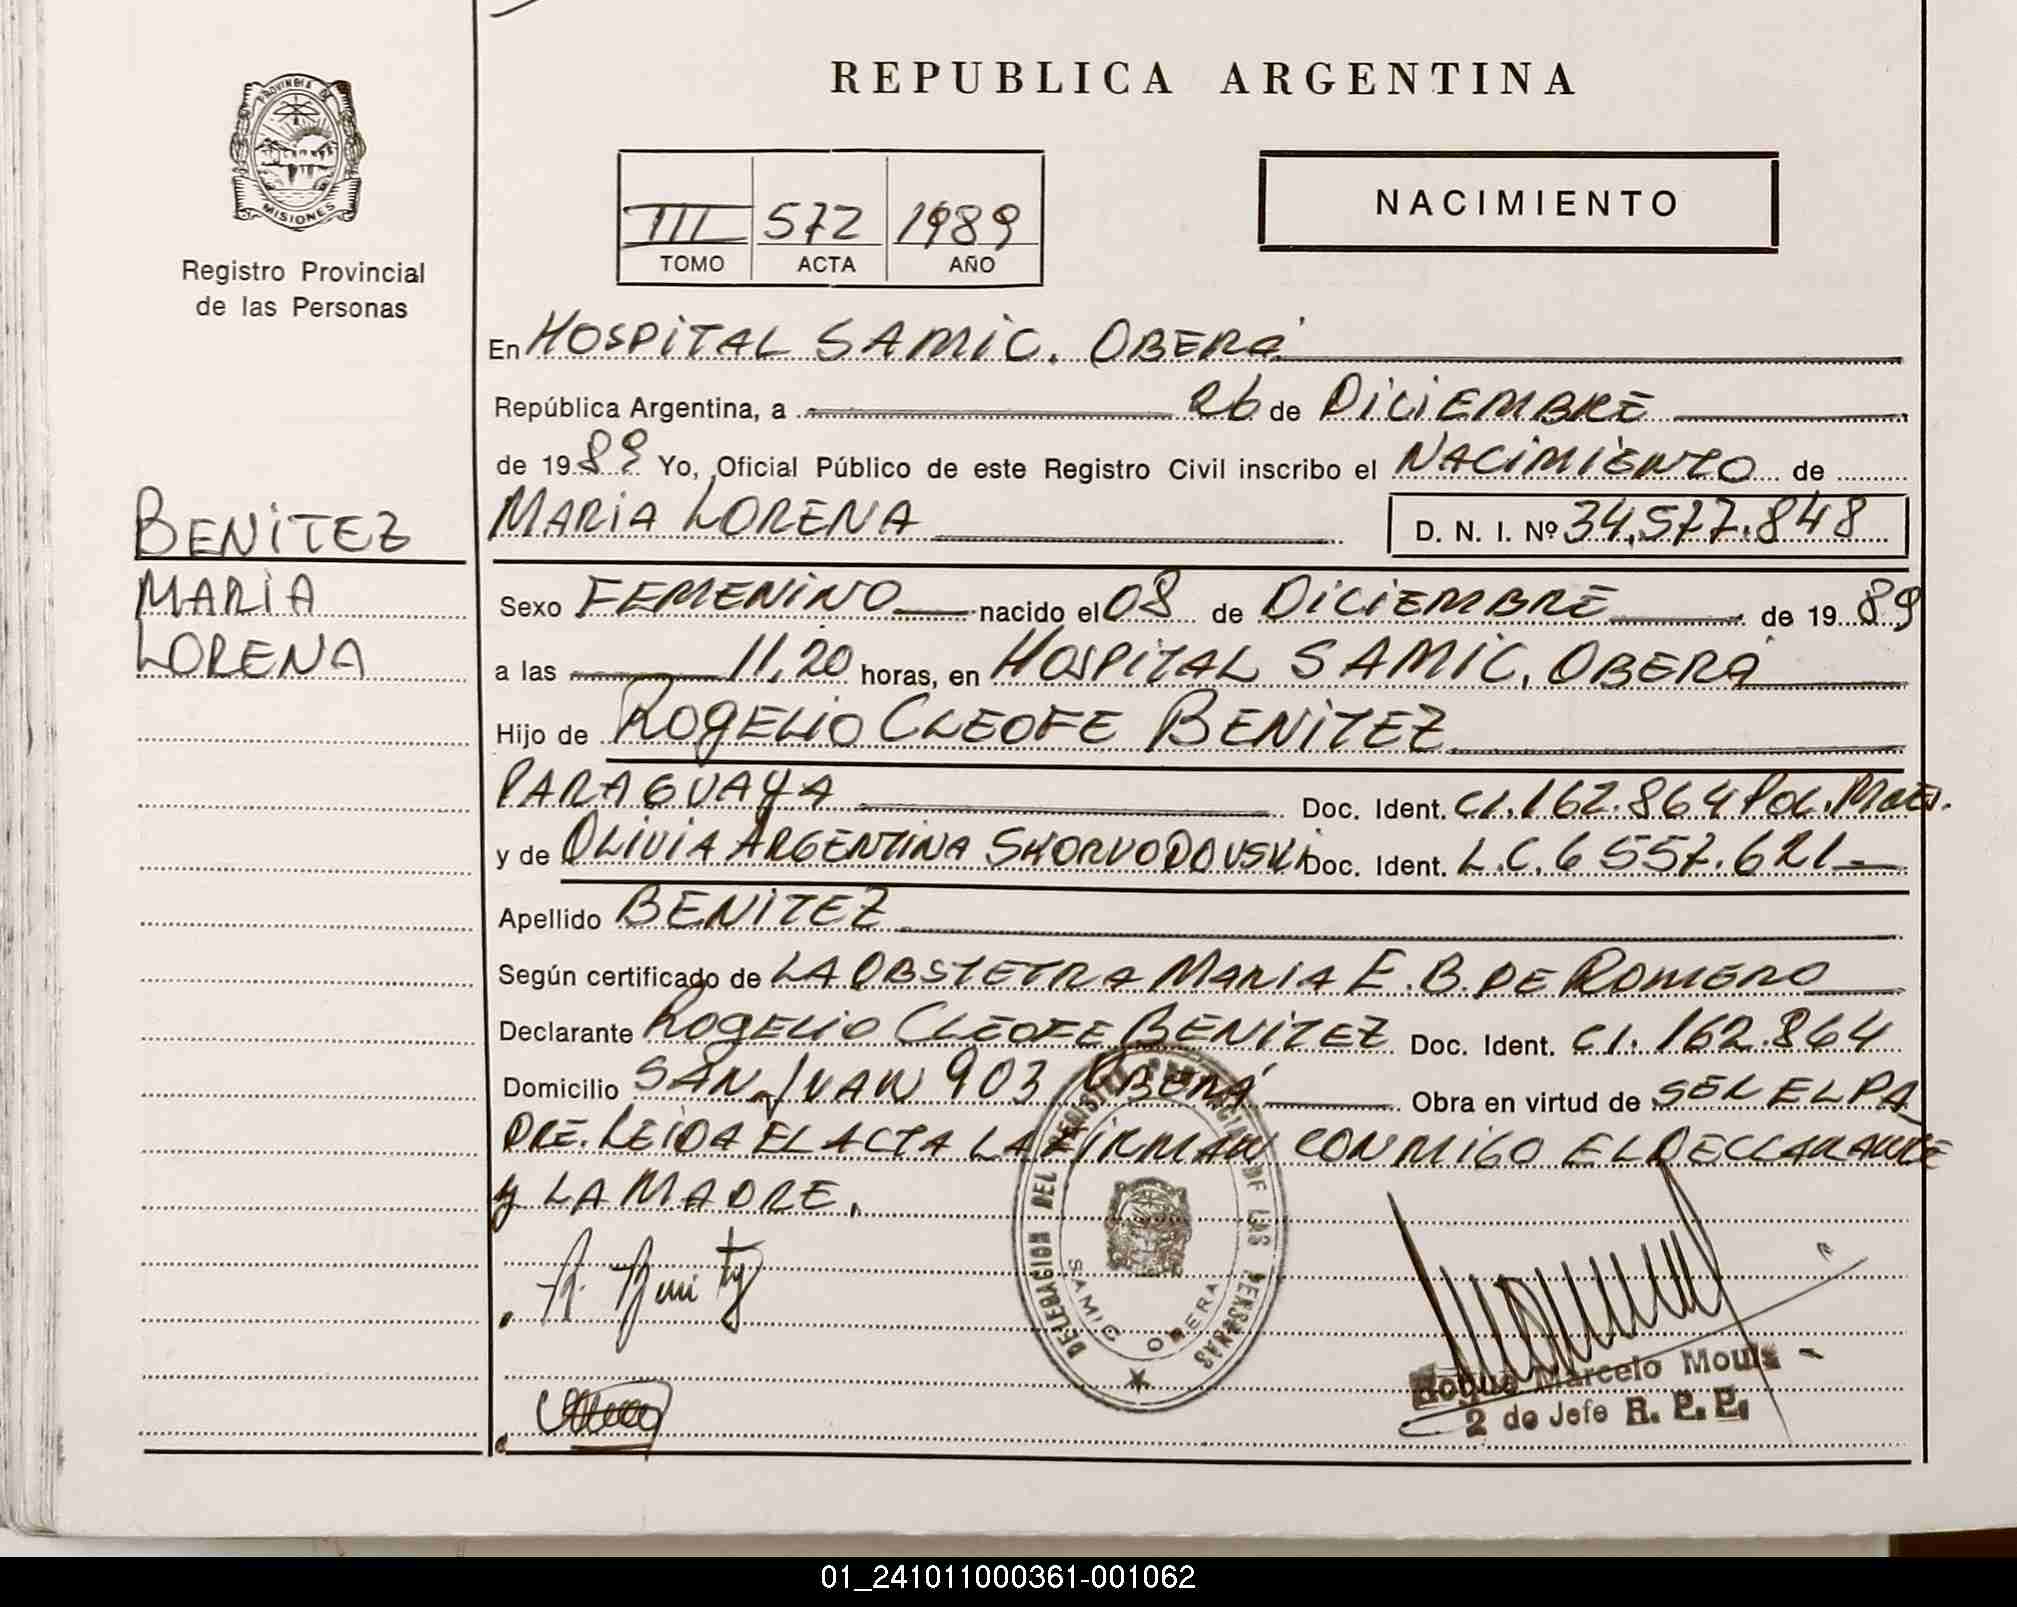 REPUBLICA ARGENTINA
PROVINCIA DE
MISIONES
Registro Provincial
de las Personas
III 572 1989
TOMO ACTA AÑO
NACIMIENTO
En HOSPITAL SAMIC. OBERÁ
República Argentina, a 26 de DICIEMBRE
de 1989 Yo, Oficial Público de este Registro Civil inscribo el NACIMIENTO de
MARIA LORENA D. N. I. Nº 34.577.848
BENITEZ
MARIA
LORENA
Sexo FEMENINO nacido el 08 de DICIEMBRE de 1989
a las 11,20 horas, en HOSPITAL SAMIC, OBERÁ
Hijo de ROGELIO CLEOFE BENITEZ
PARAGUAYA Doc. Ident. CI. 162.864 POL. MNES.
y de OLIVIA ARGENTINA SKORVODOVSKI Doc. Ident. L.C. 6 557.621
Apellido BENITEZ
Según certificado de LA OBSTETRA MARIA E. B. DE ROMERO
Declarante ROGELIO CLEOFE BENITEZ Doc. Ident. CI. 162.864
Domicilio SAN JUAN 903 OBERÁ Obra en virtud de SER EL PA
DRE. LEIDA EL ACTA LA FIRMAN CONMIGO EL DECLARANTE
y LA MADRE.
DELEGACION DEL REGISTRO PROVINCIAL DE LAS PERSONAS
SAMIC OBERA
R. Benitez
Roque Marcelo Mouls
2 do Jefe R. P. P.
01_241011000361-001062